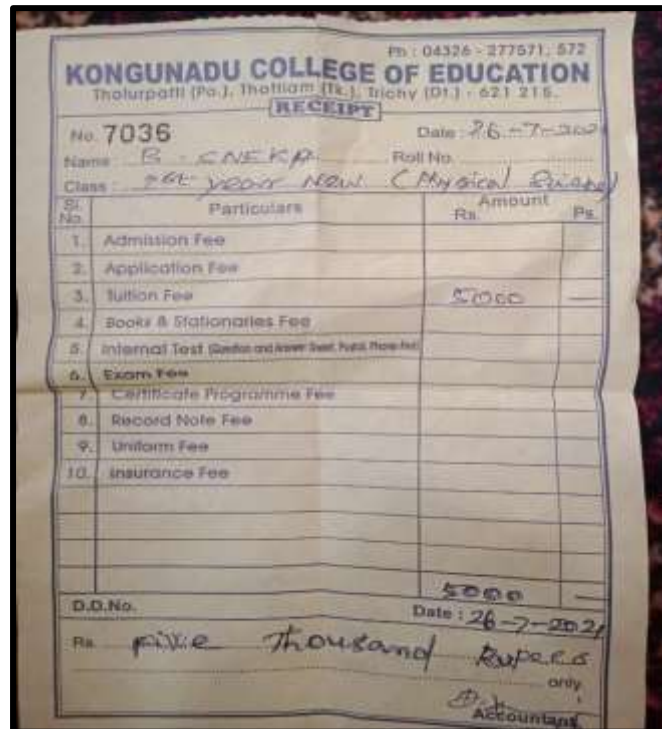 Ph : 04326 - 277571, 572
KONGUNADU COLLEGE OF EDUCATION
Tholurpatti (Po.), Thottiam (Tk.), Trichy (Dt.) - 621 215.
RECEIPT
No. 7036 Date : 26-7-2021
Name B. SNEKA Roll No.
Class : 1st year New (Physical Science)
Sl. No. Particulars Amount Rs. Ps.
1. Admission Fee
2. Application Fee
3. Tuition Fee 5000 —
4. Books & Stationaries Fee
5. Internal Test (Question and Answer Sheet, Postal, Phone Fee)
6. Exam Fee
7. Certificate Programme Fee
8. Record Note Fee
9. Uniform Fee
10. Insurance Fee
5000 —
D.D.No. Date : 26-7-2021
Rs. Five Thousand Rupees
only
Accountant